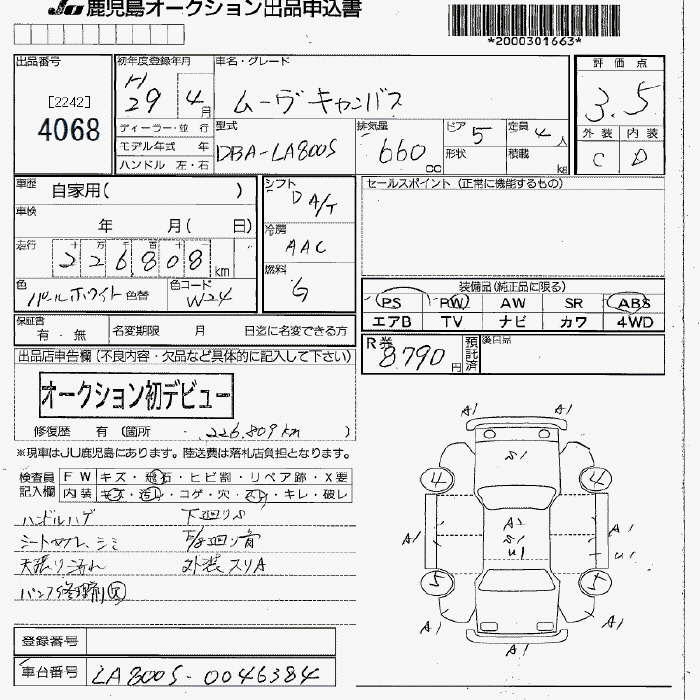 JU 鹿児島オークション出品申込書
*2000301663*
出品番号
[2242]
4068
初年度登録年月
H29 4月
車名・グレード
ムーヴキャンバス
評価点
3.5
外装 内装
C D
ディーラー・並行
モデル年式 年
ハンドル 左・右
型式
DBA-LA800S
排気量
660 cc
ドア 5
形状
定員 4人
積載 kg
車歴
自家用( )
車検
年 月( 日)
走行
十 万 千 百 十
226,808 km
色
パールホワイト 色替
色コード
W24
シフト
D A/T
冷房
AAC
燃料
G
セールスポイント (正常に機能するもの)
装備品(純正品に限る)
PS PW AW SR ABS
エアB TV ナビ カワ 4WD
保証書
有・無
名変期限 月 日迄に名変できる方
R券
8,790円
預託済
後日品
出品店申告欄(不良内容・欠品など具体的に記入して下さい)
オークション初デビュー
修復歴 有 (箇所 226,809km )
※現車はJU鹿児島にあります。陸送費は落札店負担となります。
検査員記入欄
FW キズ・飛石・ヒビ割・リペア跡・X要
内装 キズ・汚れ・コゲ・穴・スレ・キレ・破レ
ハンドルハゲ 下廻りS
シミ
天張り汚れ 外装スリA
A1 A1
S1
4 4
A1 A2 A1
S1
U1 U1
5 5
A1 A1
A1
登録番号
車台番号 LA800S-0046384